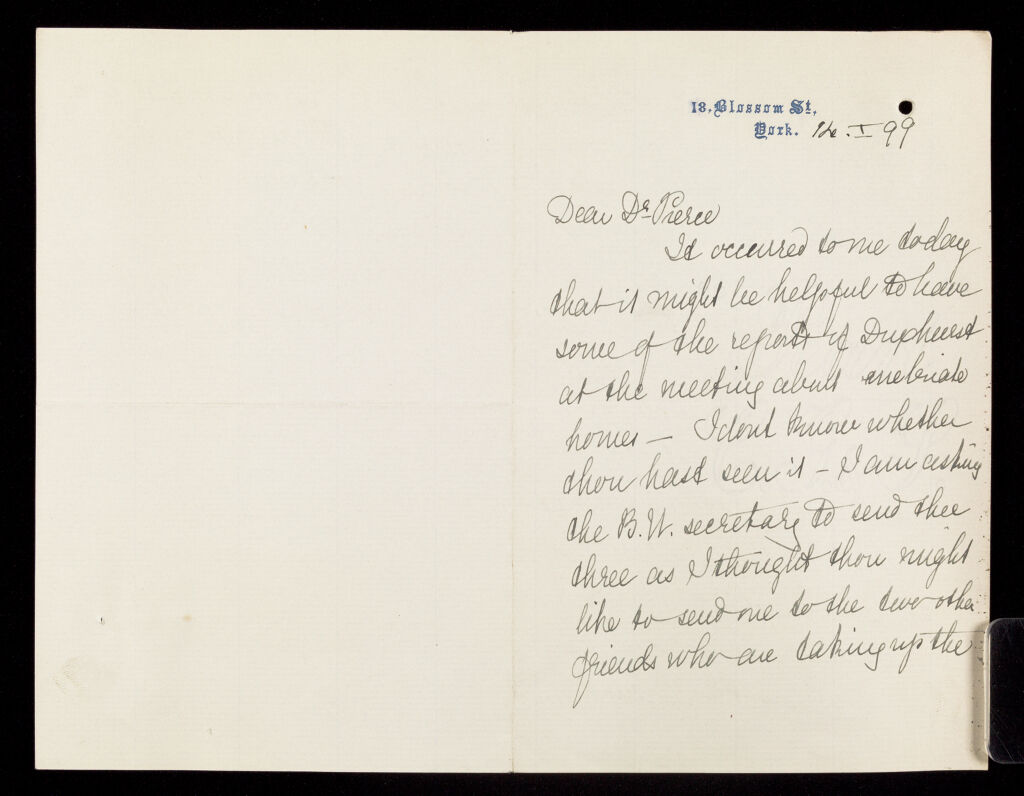 13, Blossom St.,
York. 14. I 99
Dear Dr. Pierce
It occurred to me today
that it might be helpful to have
some of the reports of Duxhurst
at the meeting about inebriate
homes — I dont know whether
thou hast seen it – I am asking
the B.W. secretary to send thee
three as I thought thou might
like to send one to the two other
friends who are taking up the